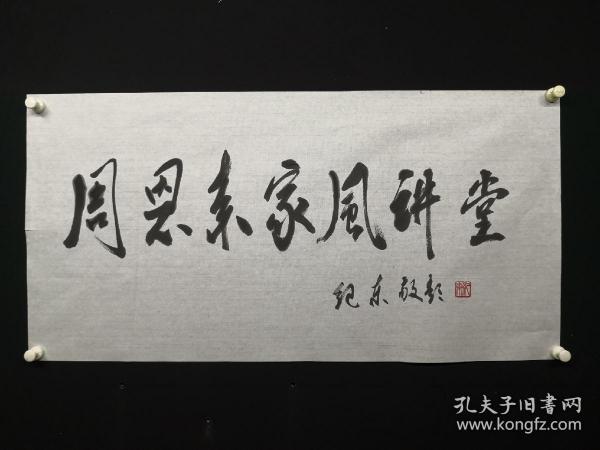 周恩来家風讲堂
纪东敬题
孔夫子旧書网
www.kongfz.com